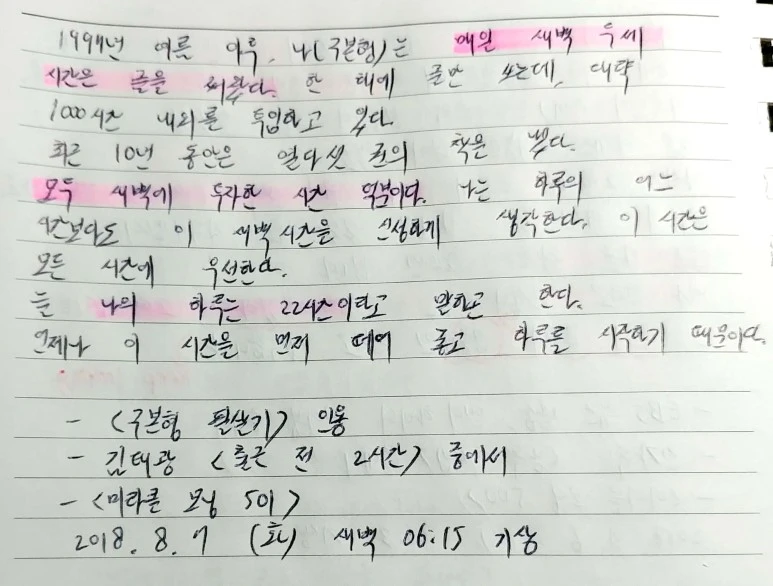 1997년 여름 이후, 나(구본형)는 매일 새벽 두세
시간은 글을 써왔다. 한 해에 글만 쓰는데, 대략
1000시간 내외를 투입하고 있다.
최근 10년 동안은 열다섯 권의 책을 냈다.
모두 새벽에 투자한 시간 덕분이다. 나는 하루의 어느
시간보다도 이 새벽시간을 신성하게 생각한다. 이 시간은
모든 시간에 우선한다.
늘 나의 하루는 22시간이라고 말하곤 한다.
언제나 이 시간을 먼저 떼어 놓고 하루를 시작하기 때문이다.
- <구본형 필살기> 인용
- 김태광 <출근 전 2시간> 중에서
- <미라클 모닝 501>
2018. 8. 7 (화) 새벽 06:15 기상